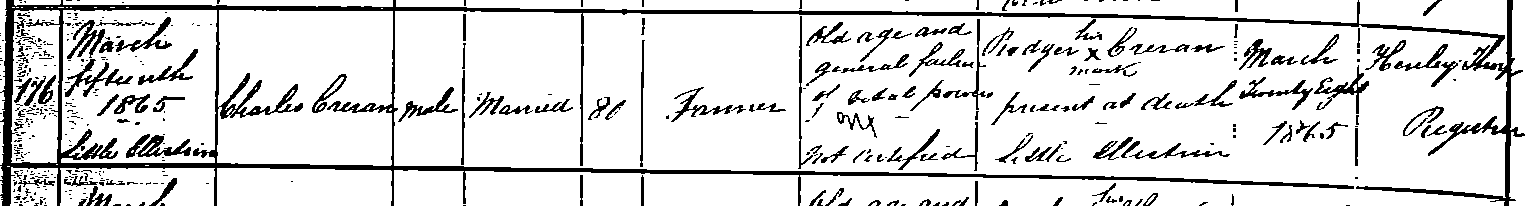 176
March
fifteenth
1865
Little Ellistrin
Charles Creran
Male
Married
80
Farmer
Old age and
general failure
of vital powers
Not certified
Rodger his x mark Creran
present at death
Little Ellistrin
March
Twenty Eight
1865
Henley Thorp
Registrar
March
Old age and
his